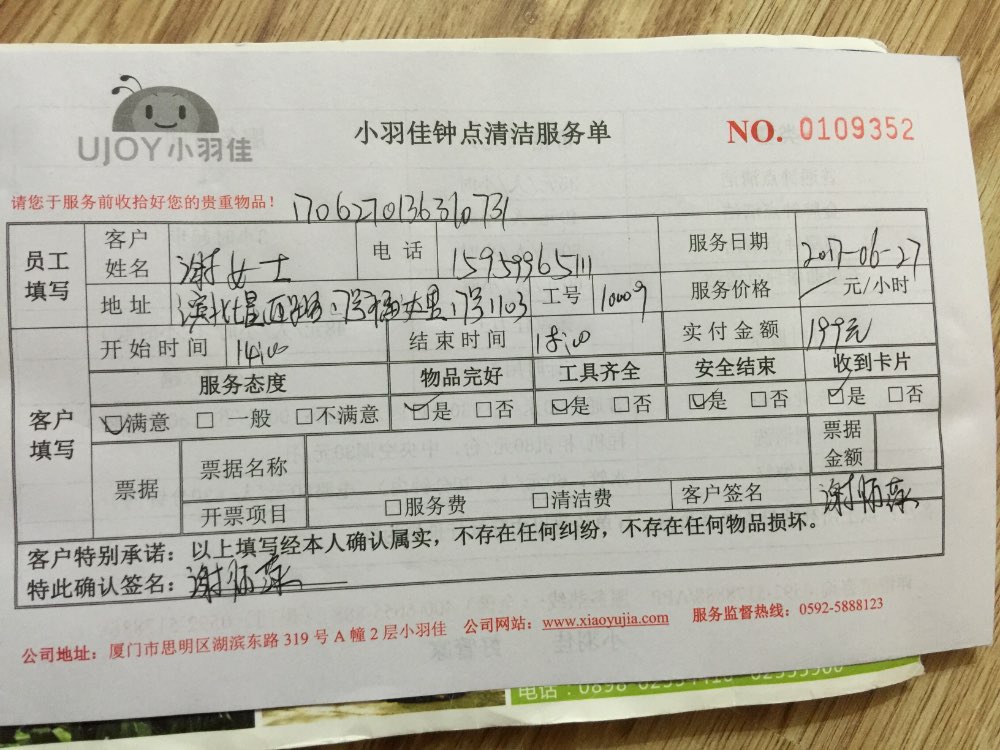 UJOY小羽佳
小羽佳钟点清洁服务单
NO. 0109352
请您于服务前收拾好您的贵重物品！
1706270136360731
员工填写 客户姓名 谢女士 电话 15959965111 服务日期 2017-06-27
地址 17号 1103 工号 10009 服务价格 元/小时
开始时间 14:00 结束时间 18:00 实付金额 199元
服务态度 物品完好 工具齐全 安全结束 收到卡片
客户填写 ☑满意 □ 一般 □不满意 ☑是 □否 ☑是 □否 ☑是 □否 ☑是 □否
票据 票据名称 票据金额
开票项目 □服务费 □清洁费 客户签名 谢
客户特别承诺：以上填写经本人确认属实，不存在任何纠纷，不存在任何物品损坏。
特此确认签名：谢
公司地址：厦门市思明区湖滨东路 319 号 A 幢 2 层小羽佳 公司网站：www.xiaoyujia.com 服务监督热线：0592-5888123